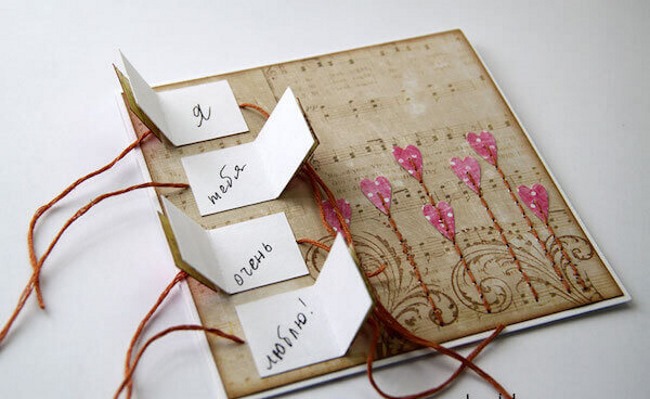 я
тебя
очень
люблю!